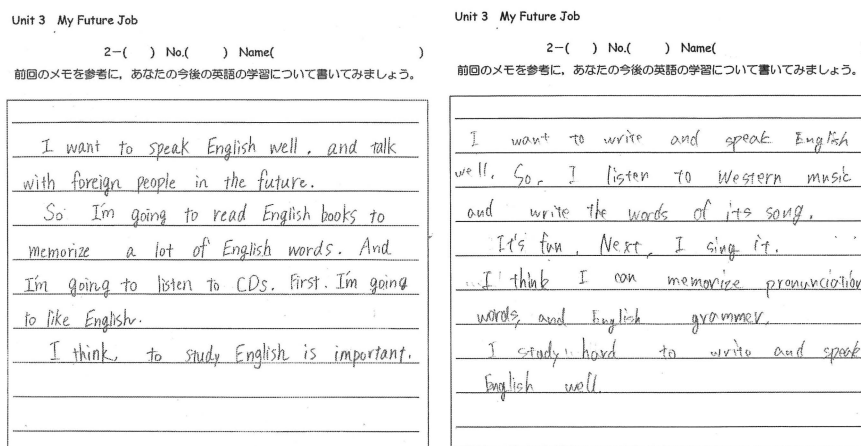 Unit 3 My Future Job
2-( ) No.( ) Name( )
前回のメモを参考に，あなたの今後の英語の学習について書いてみましょう。
I want to speak English well, and talk
with foreign people in the future.
So I'm going to read English books to
memorize a lot of English words. And
I'm going to listen to CDs. First. I'm going
to like English.
I think, to study English is important.
Unit 3 My Future Job
2-( ) No.( ) Name(
前回のメモを参考に，あなたの今後の英語の学習について書いてみましょう。
I want to write and speak English
well. So, I listen to Western music
and write the words of its song.
It's fun. Next, I sing it.
I think I can memorize pronunciation
words, and English grammer.
I study hard to write and speak
English well.